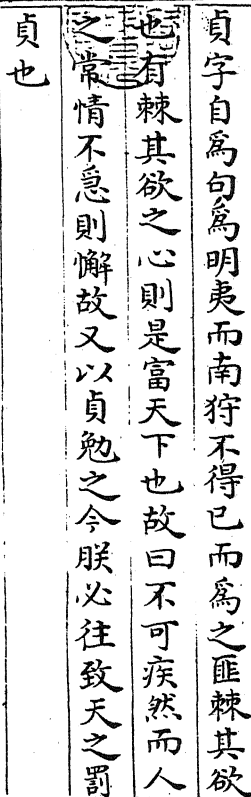 貞字自爲句爲明夷而南狩不得已而爲之匪棘其欲
也有棘其欲之心則是富天下也故曰不可疾然而人
之常情不急則懈故又以貞勉之今朕必往致天之罰
貞也